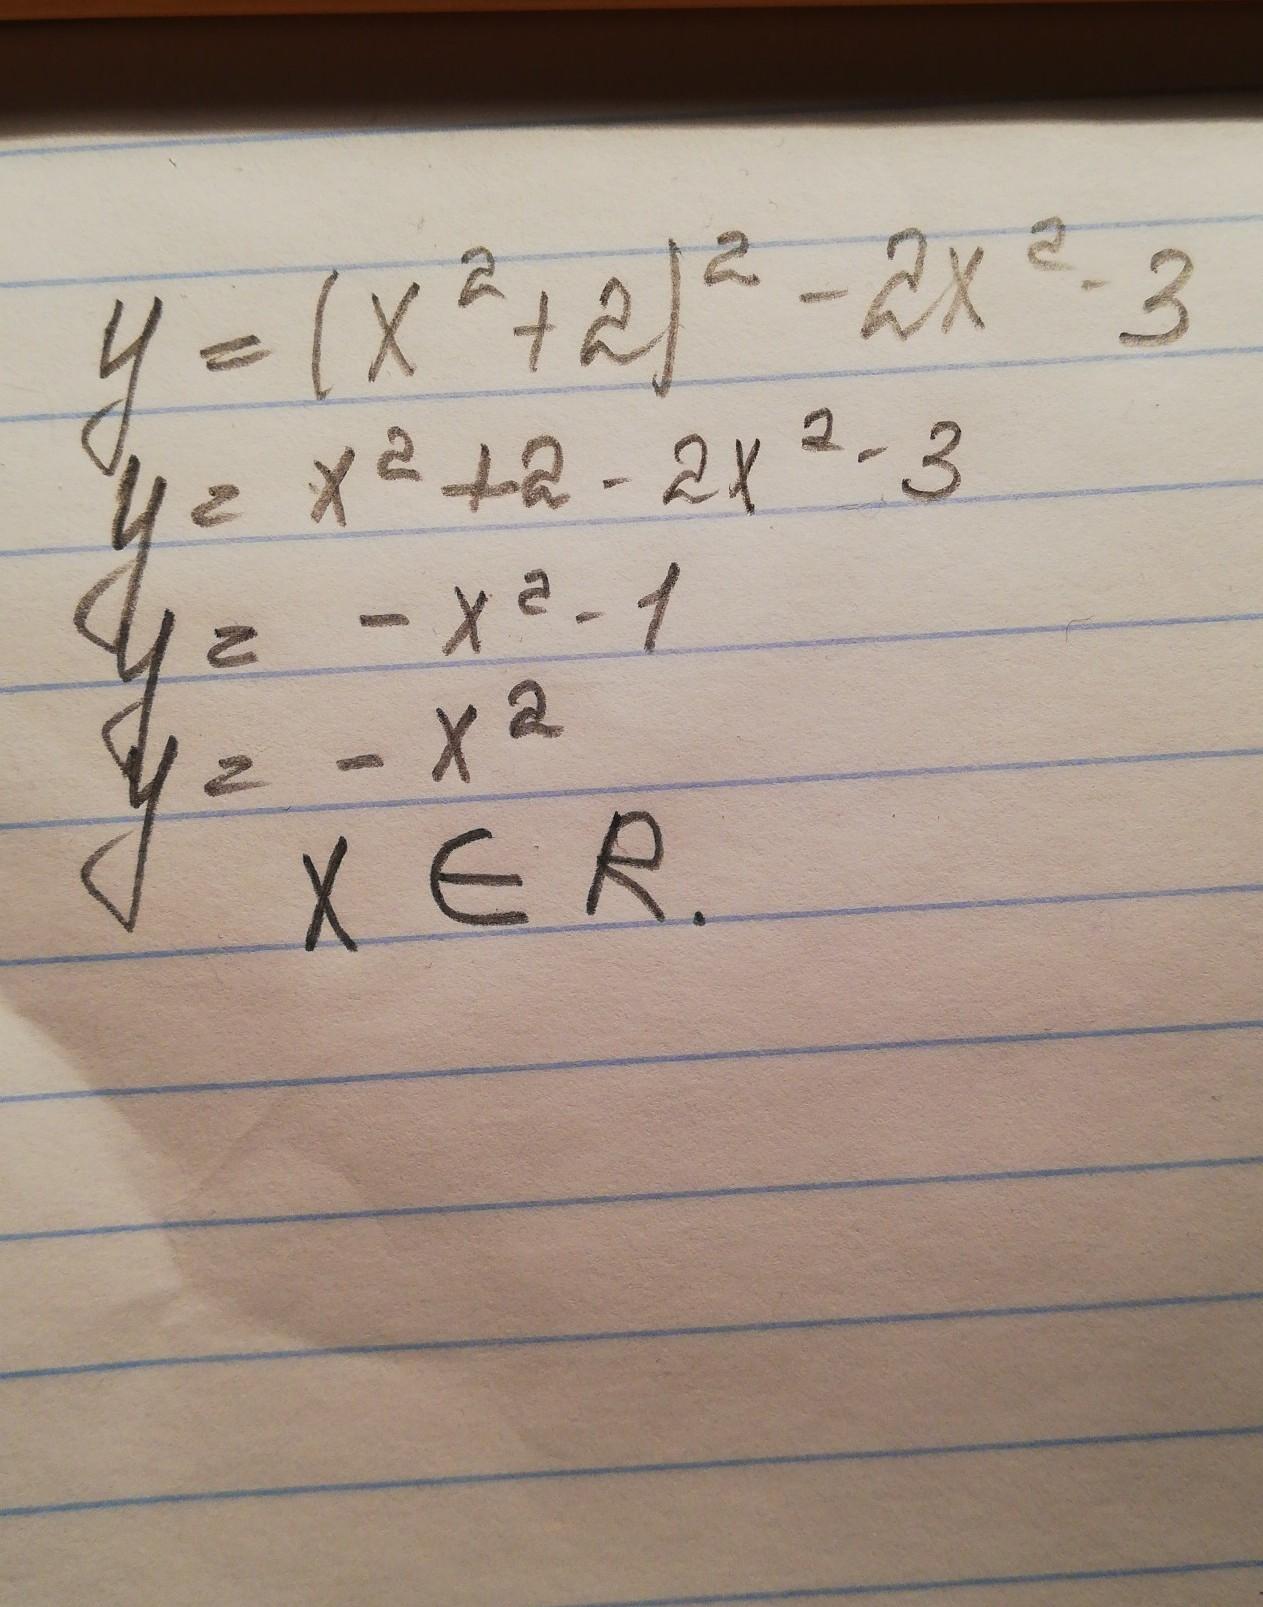 y = (x² + 2)² - 2x² - 3
y = x² + 2 - 2x² - 3
y = - x² - 1
y = - x²
x ∈ R.